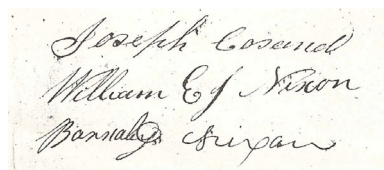 Joseph Cosand
William E J Nixon
Barnaby Nixon